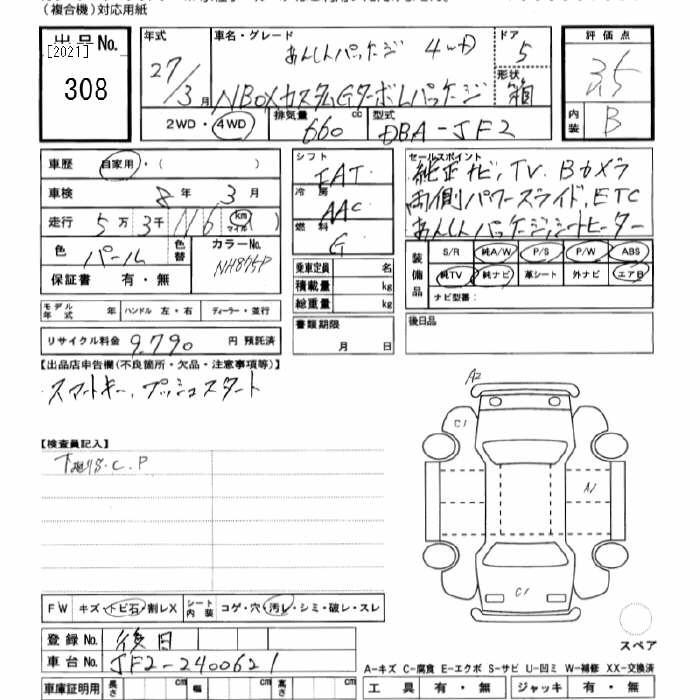 （複合機）対応用紙
出品No.
[2021]
308
年式
27/3月
車名・グレード
あんしんパッケージ 4WD
NBOXカスタムGターボLパッケージ
ドア
5
形状
箱
評価点
3.5
内装
B
2WD・4WD
排気量
660 cc
型式
DBA-JF2
車歴
自家用・( )
車検
8年 3月
走行
5万3千116 km マイル
色
パール
色替
カラーNo.
NH875P
保証書 有・無
シフト
FAT
冷房
AAC
燃料
G
乗車定員 名
積載量 kg
総重量 kg
セールスポイント
純正ナビ,TV.Bカメラ
両側パワースライド,ETC
あんしんパッケージ,シートヒーター
装備品
S/R 純A/W P/S P/W ABS
純TV 純ナビ 革シート 外ナビ エアB
ナビ型番：
モデル年式 年
ハンドル 左・右
ディーラー・並行
リサイクル料金 9,790 円 預託済
書類期限
月 日
後日品
【出品店申告欄(不良箇所・欠品・注意事項等)】
スマートキー,プッシュスタート
【検査員記入】
C.P
A2
C1
A1
C1
スペア
FW キズ・トビ石・割レX
シート内装 コゲ・穴・汚レ・シミ・破レ・スレ
登録No. 後日
車台No. JF2-2400621
車庫証明用 長さ cm 幅 cm 高さ cm
A-キズ C-腐食 E-エクボ S-サビ U-凹ミ W-補修 XX-交換済
工具 有・無 ジャッキ 有・無